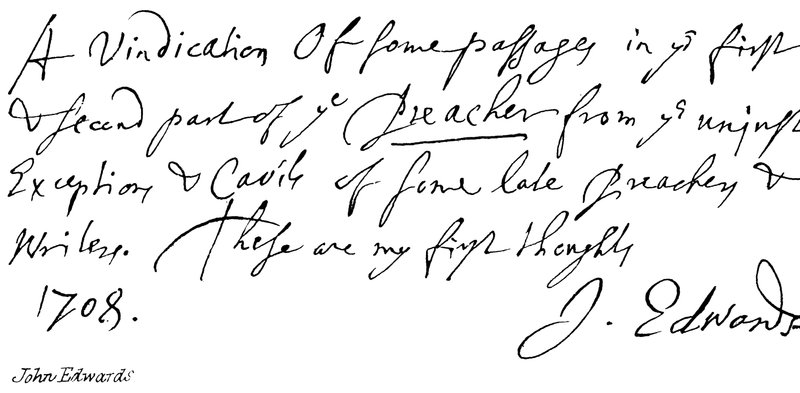 A Vindication Of some passages in yᵉ first
& second part of yᵉ Preacher from yᵉ unjust
Exceptions & Cavils of some late Preachers &
Writers. These are my first thoughts
1708.
J. Edwards
John Edwards